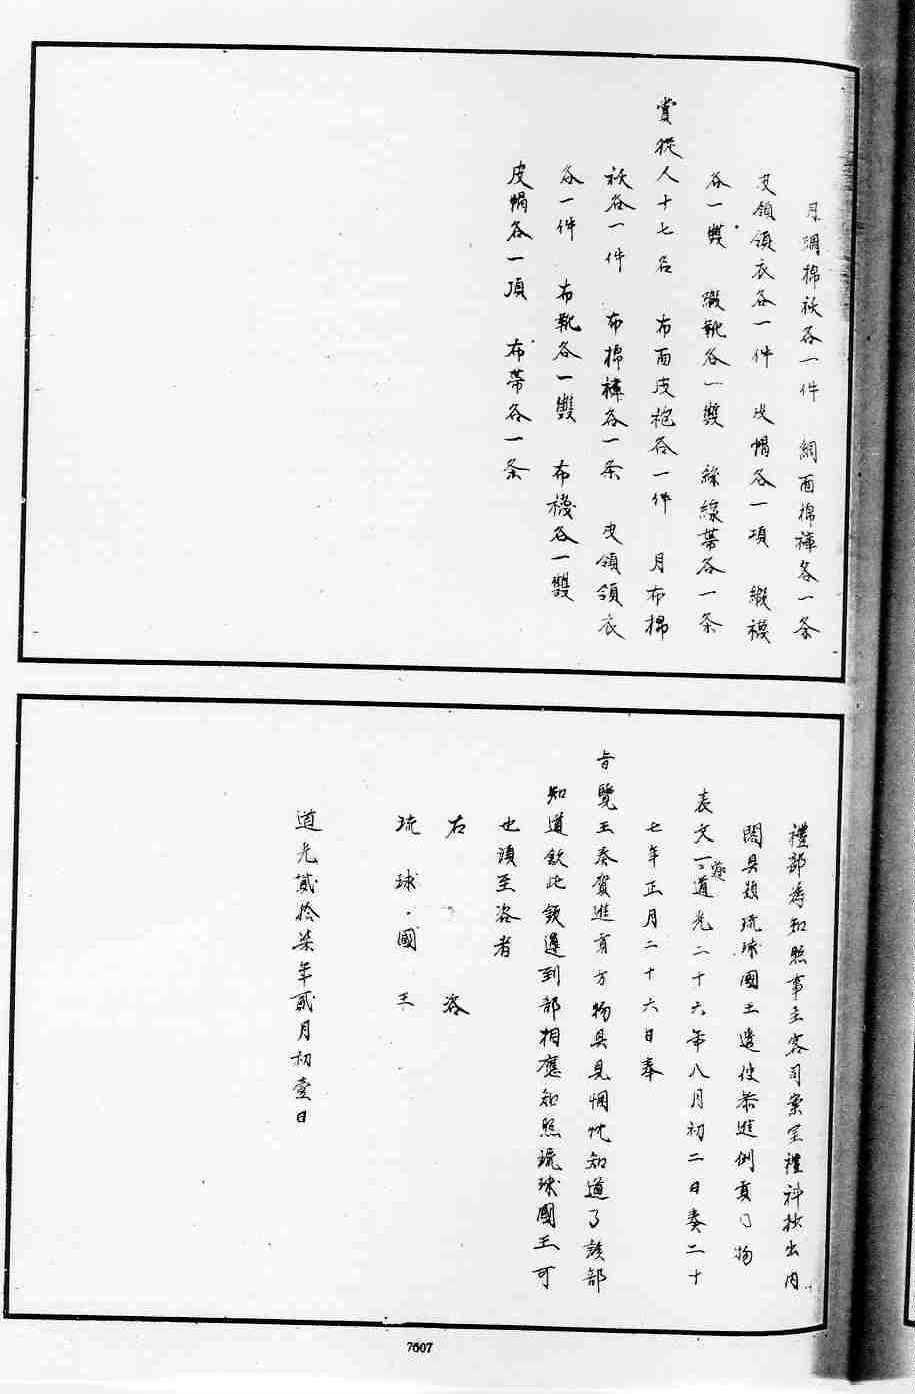 月綢棉袄各一件　綢面棉褲各一条
皮領領衣各一件　皮帽各一項　緞襪
各一雙　緞靴各一雙　絲線帶各一条
賞從人十七名　布面皮袍各一件　月布棉
袄各一件　布棉褲各一条　皮領領衣
各一件　布靴各一雙　布襪各一雙
皮帽各一項　布帶各一条
禮部為知照事主客司案呈禮科抄出內
閣具題琉球國王遣使恭進例貢物
表文一道光二十六年八月初二日奏二十
七年正月二十六日奉
旨覽王奏賀進貢方物具見悃忱知道了該部
知道欽此欽遵到部相應知照琉球國王可
也須至咨者
右咨
琉球國王
道光貳拾柒年貳月初壹日
7607